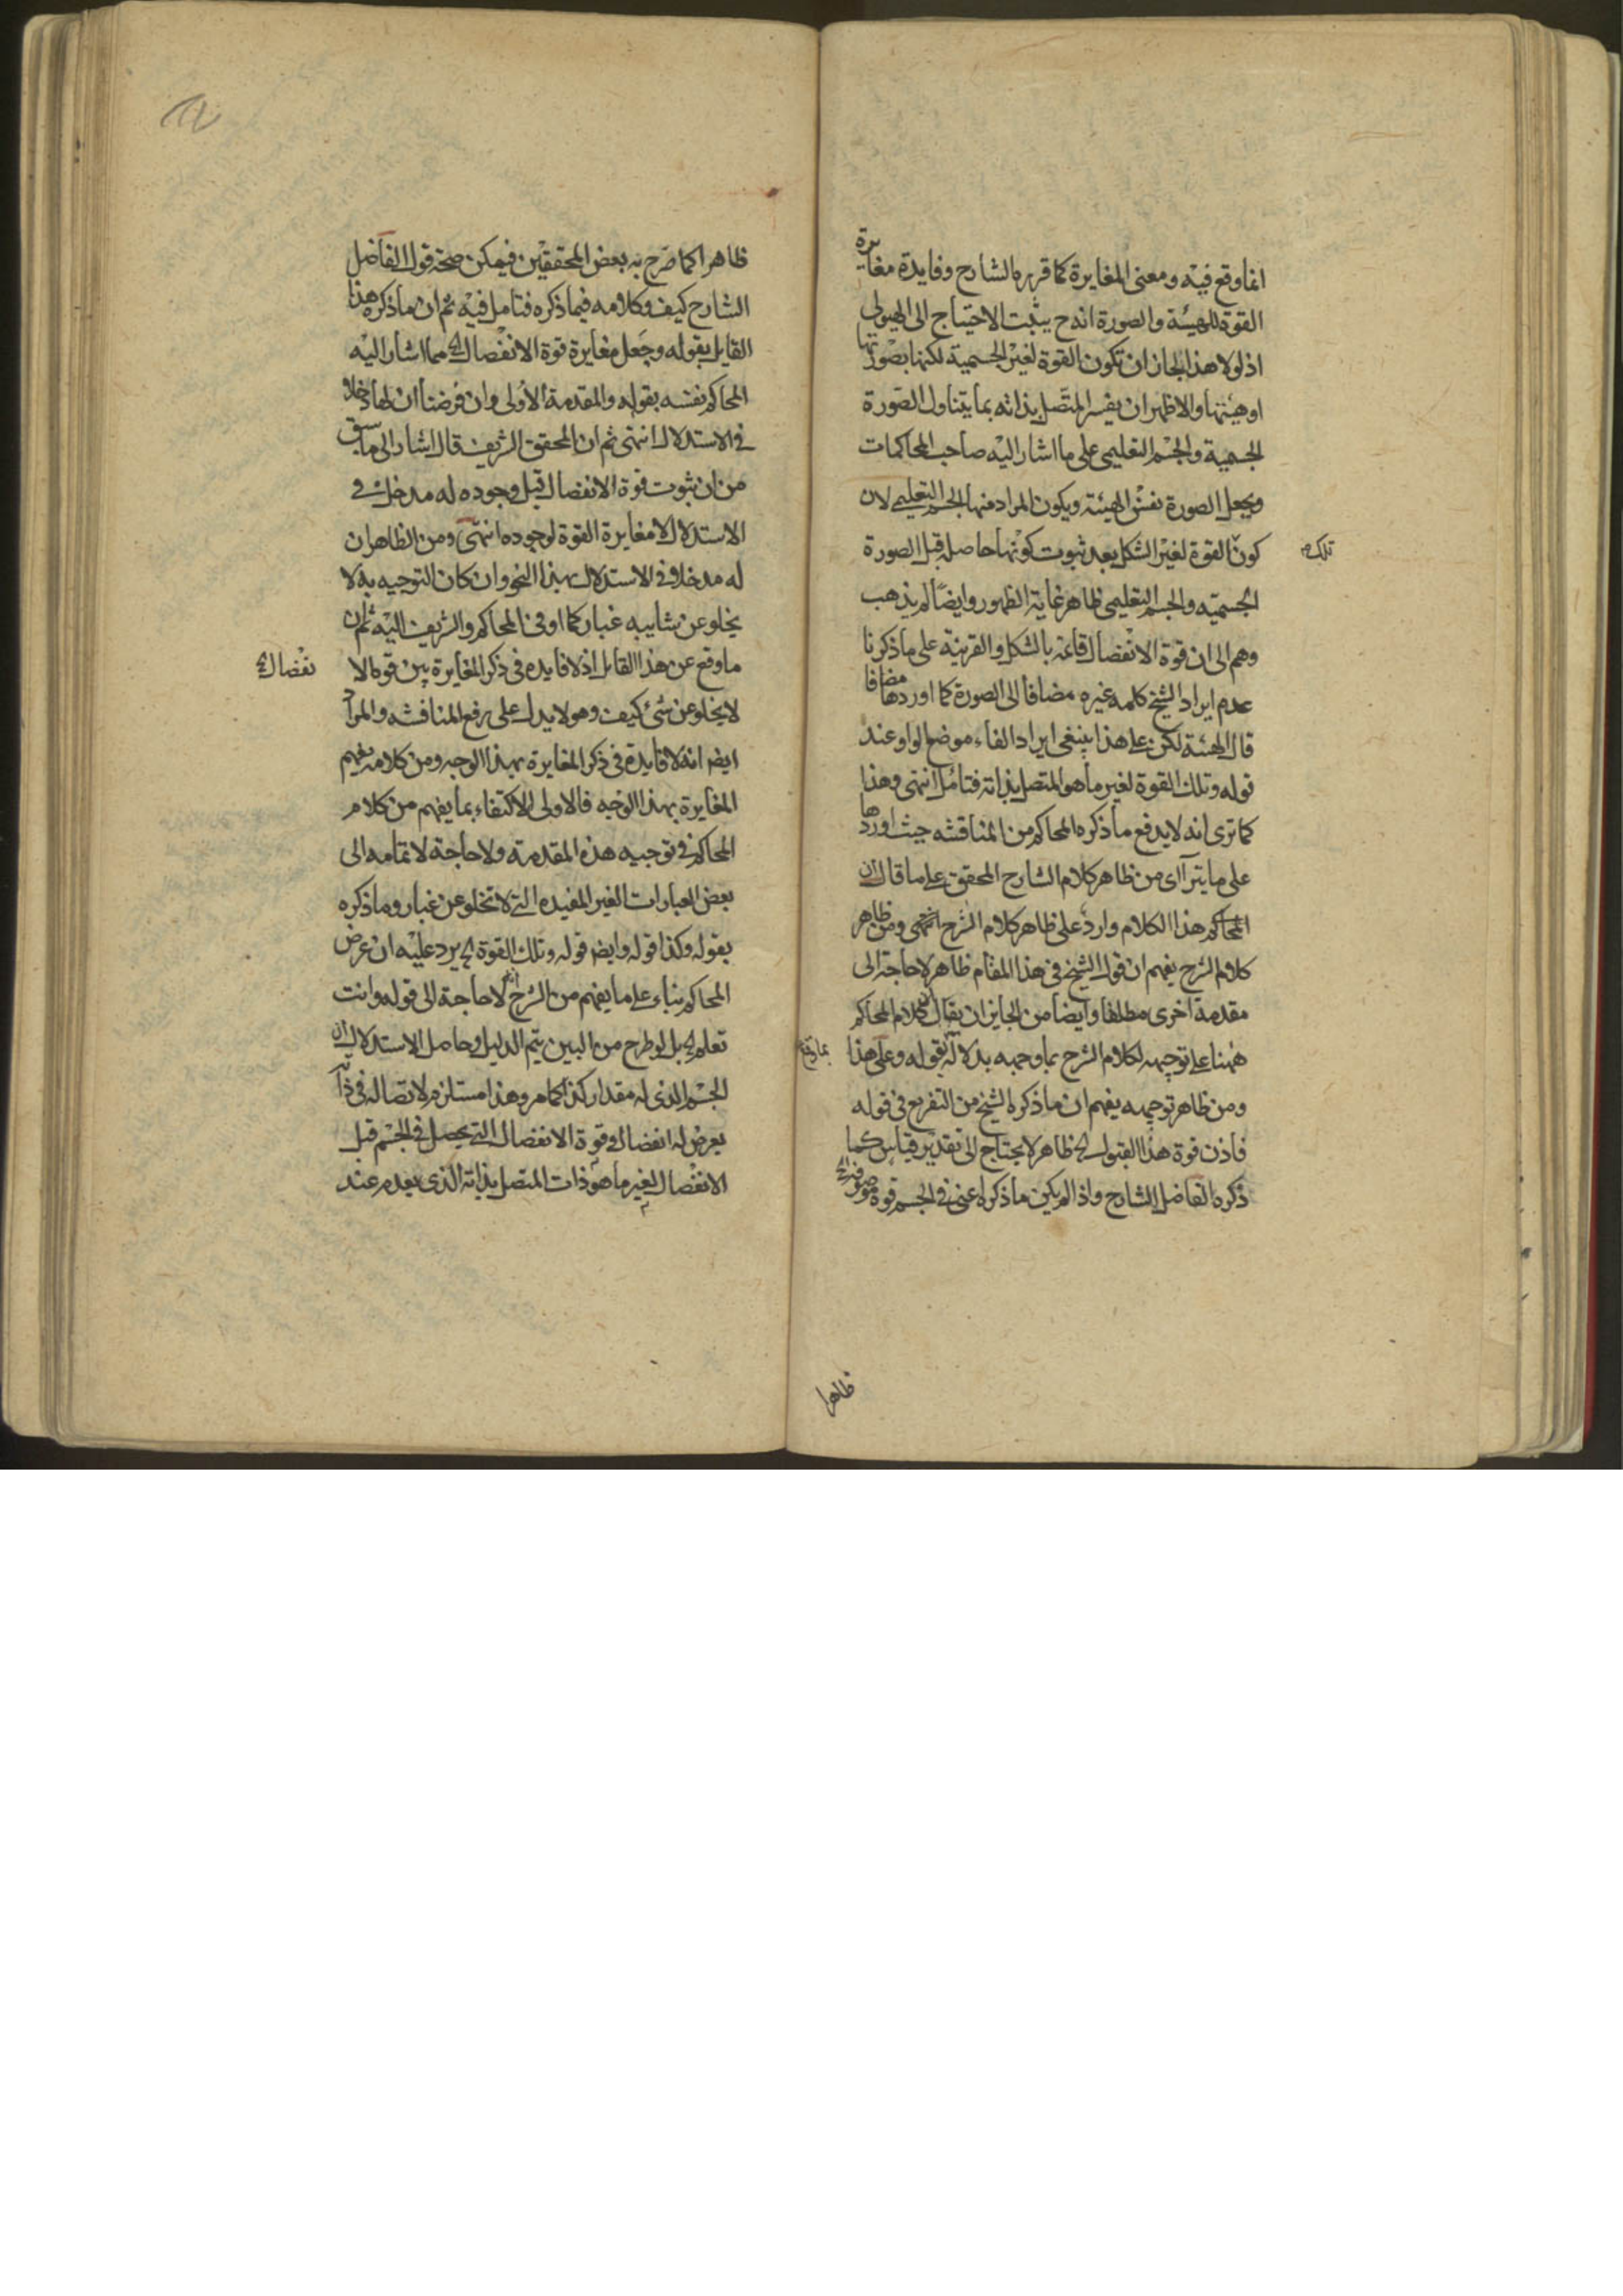 انما وقع فيه ومعنى المغايرة كما قرره الشارح وفايدة مغايرة
القوة للهيئة والصورة انه ح يثبت الاحتياج الى الهيولى
اذ لولا هذا لجاز ان تكون القوة لغير الجسمية لكنها بصورتها
او هيئتها والاظهر ان يفسر المتصل بذاته بما يتناول الصورة
الجسمية والجسم التعليمى على ما اشار اليه صاحب المحاكمات
ويجعل الصورة نفس الهيئة ويكون المراد منها الجسم التعليمى لان
كون القوة لغير الشكل بعد ثبوت كونها حاصلة قبل الصورة
تلك
الجسميه والجسم التعليمى ظاهر غاية الظهور وايضا لم يذهب
وهم الى ان قوة الانفصال قائمة بالشكل والقرينة على ما ذكرنا
عدم ايراد الشيخ كلمه غيره مضافا الى الصورة كما اوردها مضافا
قال الهيئة لكن على هذا ينبغى ايراد الفاء موضع الواو عند
قوله وتلك القوة لغير ما هو المتصل بذاته فتامل انتهى وهذا
كما ترى انه لا يدفع ما ذكره المحاكم من المناقشه حيث اوردها
على ما يترآاى من ظاهر كلام الشارح المحقق على ما قال ان
المحاكم هذا الكلام وارد على ظاهر كلام الشرح انتهى ومن ظاهر
كلام الشرح يفهم ان قول الشيخ فى هذا المقام ظاهر لا حاجة الى
مقدمة اخرى مطلقا وايضا من الجايز ان يقال ان كلام المحاكم
ههنا على توجيهه لكلام الشرح بما وجهه بدلالة بقوله وعلى هذا
ومن ظاهر توجيهه يفهم ان ما ذكره الشيخ من التفريع فى قوله
فاذن قوة هذا القبول الخ ظاهر لا يحتاج الى تقدير قياس كما
ذكره الفاضل الشارح واذا لم يكن ما ذكراه اعنى فى الجسم قوة
ظاهرا
ظاهرا كما صرح به بعض المحققين فيمكن صحة قول الفاضل
الشارح كيف وكلامه فيما ذكره فتامل فيه ثم ان ما ذكره هذا
القايل بقوله وجعل مغايرة قوة الانفصال الخ مما اشار اليه
المحاكم نفسه بقوله والمقدمة الاولى وان فرضنا ان لها دخلا
فى الاستدلال انتهى ثم ان المحقق الشريف قال اشار الى ما سبق
من ان ثبوت قوة الانفصال قبل وجوده له مدخل فى
الاستدلال لا مغايرة القوة لوجوده انتهى ومن الظاهر ان
له مدخلا فى الاستدلال بهذا النحو وان كان التوجيه به لا
يخلو عن شايبه غبار كما اوفنا المحاكم والشريف اليه ثم ان
ما وقع عن هذا القايل اذ لا فايده فى ذكر المغايرة بين قوة الا
نفصال الخ
لا يخلو عن شئ كيف وهو لا يدل على رفع المناقشه والمراد
ايض انه لا فايدة فى ذكر المغايرة بهذا الوجه ومن كلامه يفهم
المغايرة بهذا الوجه فالاولى الاكتفاء بما يفهم من كلام
المحاكم فى توجيه هذه المقدمة ولا حاجة لاتمامه الى
بعض العبارات الغير المفيده التى لا تخلو عن غبار وما ذكره
بقوله وكذا قوله وايض قوله وتلك القوة الخ يرد عليه ان غرض
المحاكم بناء على ما يفهم من الشرح انه لا حاجة الى قوله وانت
تعلم الخ بل لو طرح من البين يتم الدليل وحاصل الاستدلال ان
الجسم الذى له مقدار كذا كما مر وهذا مستلزم لاتصاله فى ذاته
يعرض له انفصال وقوة الانفصال التى يحصل فى الجسم قبل
الانفصال لغير ما هو ذات المتصل بذاته الذى يعدم عند